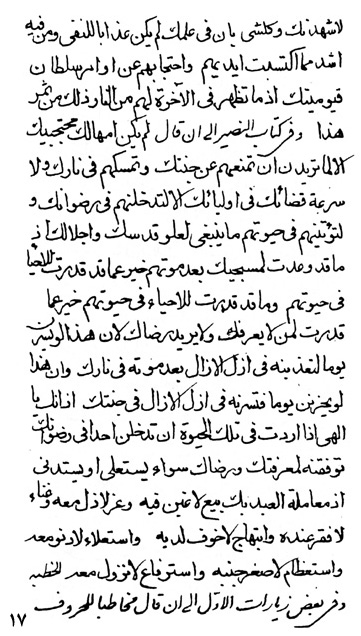 لاشهدنك وكلشئ بان فى علمك لم يكن عذابا للنفى ومن فيه
اشد مما اكتسبت ايديهم واحتجابهم عن اوامر سلطان
قيوميتك اذ ما تظهر فى الآخرة لهم من النار ذلك من ثمر
هذا وفى كتاب الى ان قال لم يكن امهالك محتجبيك
الا لما تريدن ان تمنعهم عن جنتك وتمسكهم فى نارك ولا
سرعة قضائك فى اوليائك الا لتدخلنهم فى رضوانك و
لتؤتينهم فى حيوتهم ما ينبغى لعلو قدسك واجلالك اذ
ما قد وعدت لمسجيك بعد موتهم خير عما قد قدرت للاحياء
فى حيوتهم وما قد قدرت للاحياء فى حيوتهم خير عما
قدرت لمن لا يعرفك ولا يريد رضاك لان هذا لو يسرن
يوما لتعذبنه فى ازل الازال بعد موته فى نارك وان هذا
لو يحزنن يوما فتسرنه فى ازل الازال فى جنتك اذ انك يا
الهى اذا اردت فى تلك الحيوة ان تدخلن احدا فى رضوانك
توفقنه لمعرفتك ورضاك سواء يستعلى او يستدنى
اذ معاملة العبد بك بيع لا غبن فيه وعز لا ذل معه وغناء
لا فقر عنده وابتهاج لا خوف لديه واستعلاء لا دنو معه
واستعظام لا صغر جنبه واسترفاع لا نزول معه
وفى بعض زيارات الاول الى ان قال مخاطبا للحروف
١٧